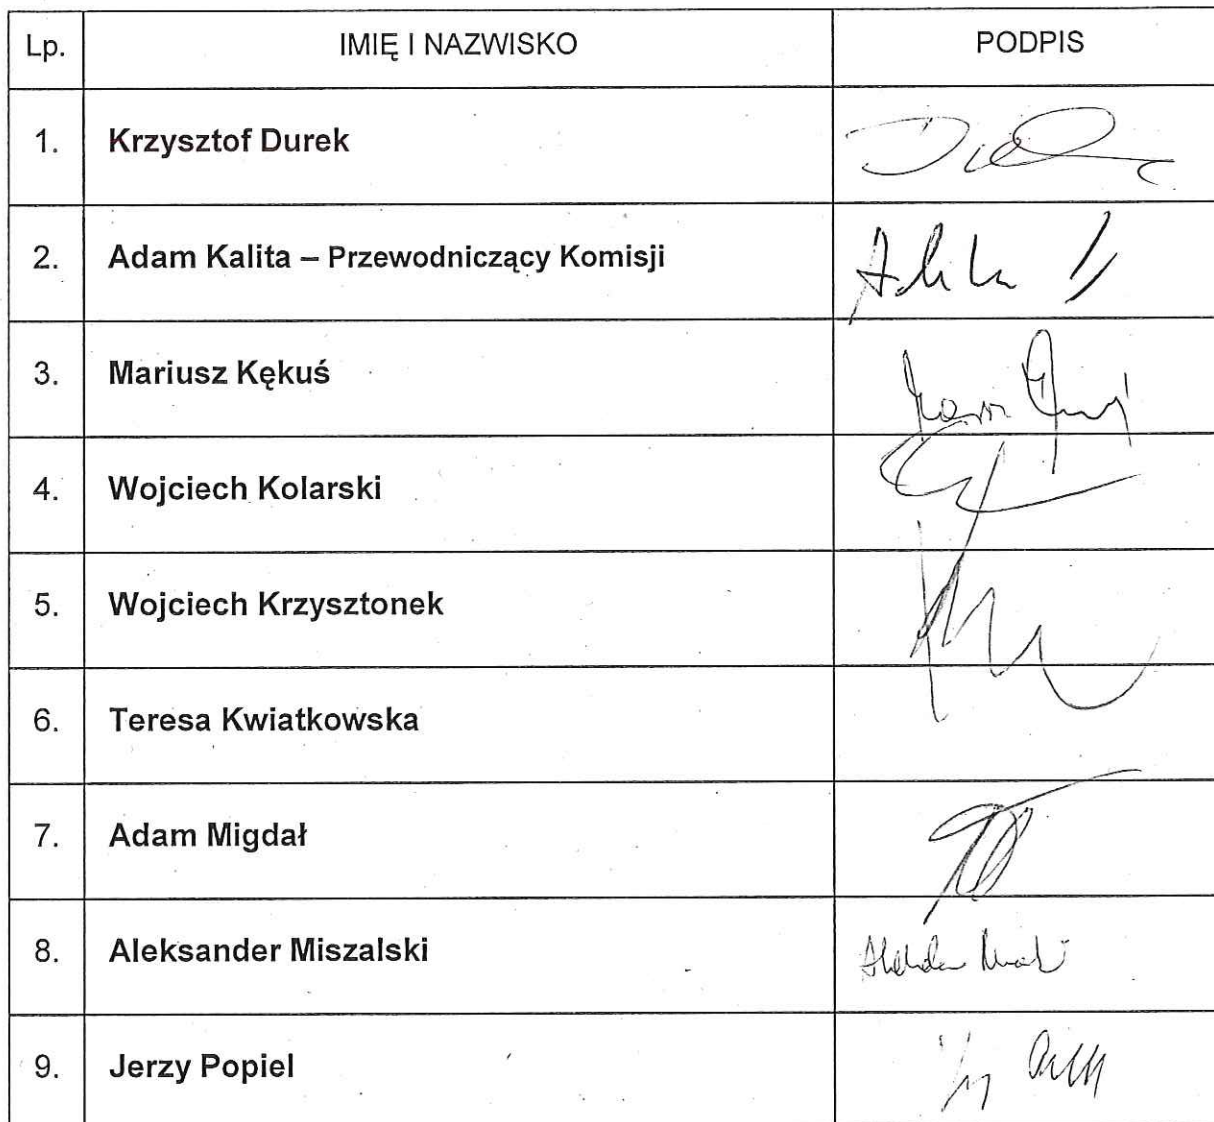 Lp. IMIĘ I NAZWISKO PODPIS
1. Krzysztof Durek
2. Adam Kalita – Przewodniczący Komisji
3. Mariusz Kękuś
4. Wojciech Kolarski
5. Wojciech Krzysztonek
6. Teresa Kwiatkowska
7. Adam Migdał
8. Aleksander Miszalski
9. Jerzy Popiel